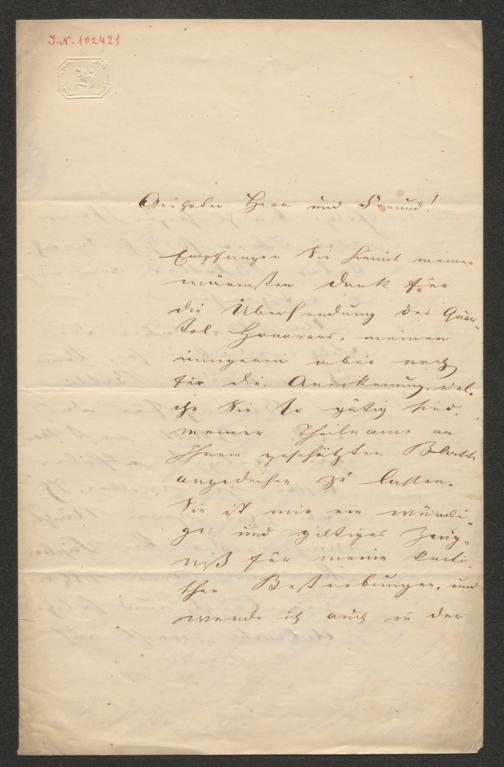 J. N. 102421
Geehrter Herr und Freund!
Empfangen Sie hiemit meinen
wärmsten Dank für
die Übersendung des Quar-
tal-Honorars, meinen
innigeren aber noch
für die Anerkennung, wel-
che Sie so gütig sind,
meiner Theilname an
Ihrem geschätzten Blatte
angedeihen zu lassen.
Sie ist mir ein würdi-
ges und giltiges Zeug-
niß für meine
Bestrebungen, und
werde ich auch in der